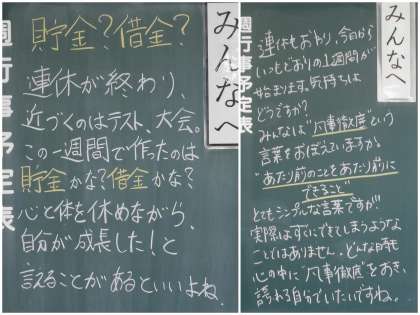 みんなへ
週行事予定表
貯金？借金？
連休が終わり、
近づくのはテスト、大会。
この一週間で作ったのは
貯金かな？借金かな？
心と体を休めながら、
自分が成長した！と
言えることがあるといいよね。
みんなへ
週行事予定表
連休もおわり、今日から
いつもどおりの1週間が
始まります。気持ちは
どうですか？
みんなは"凡事徹底"という
言葉をおぼえていますか。
"あたり前のことをあたり前に
できること"
とてもシンプルな言葉ですが
実際はすぐにできてしまうような
ことではありません。どんな時も
心の中に"凡事徹底"をおき、
誇れる自分でいたいですね。